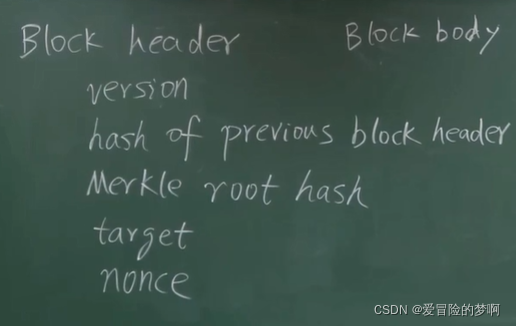 Block header Block body
version
hash of previous block header
Merkle root hash
target
nonce
CSDN @爱冒险的梦啊